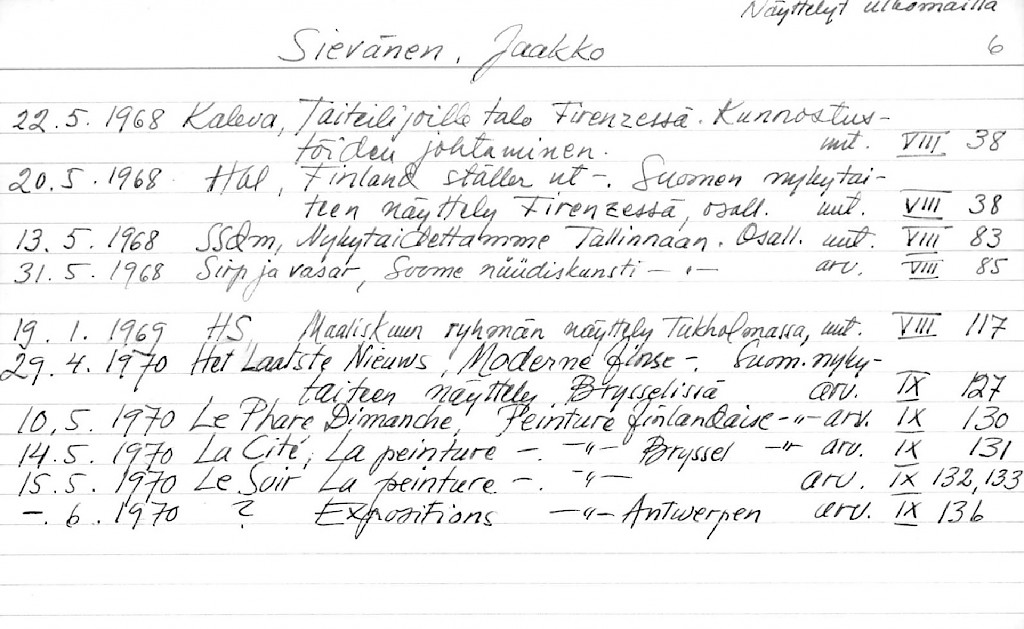 Näyttelyt ulkomailla
Sievänen, Jaakko 6
22.5.1968 Kaleva, Taiteilijoille talo Firenzessä. Kunnostus-
töiden johtaminen. uut. VIII 38
20.5.1968 Hbl, Finland ställer ut -. Suomen nykytai-
teen näyttely Firenzessä, osall. uut. VIII 38
13.5.1968 SSdm, Nykytaidettamme Tallinnaan. Osall. uut. VIII 83
31.5.1968 Sirp ja vasar, Soome nüüdiskunsti - " - arv. VIII 85
19.1.1969 HS, Maaliskuun ryhmän näyttely Tukholmassa, uut. VIII 117
29.4.1970 Het Laatste Nieuws, Moderne finse -. Suom. nyky-
taiteen näyttely Brysselissä arv. IX 127
10.5.1970 Le Phare Dimanche, Peinture finlandaise - " - arv. IX 130
14.5.1970 La Cité, La peinture -. - " - Bryssel - " - arv. IX 131
15.5.1970 Le Soir La peinture -. - " - arv. IX 132,133
-.6.1970 ? Expositions - " - Antwerpen arv. IX 136